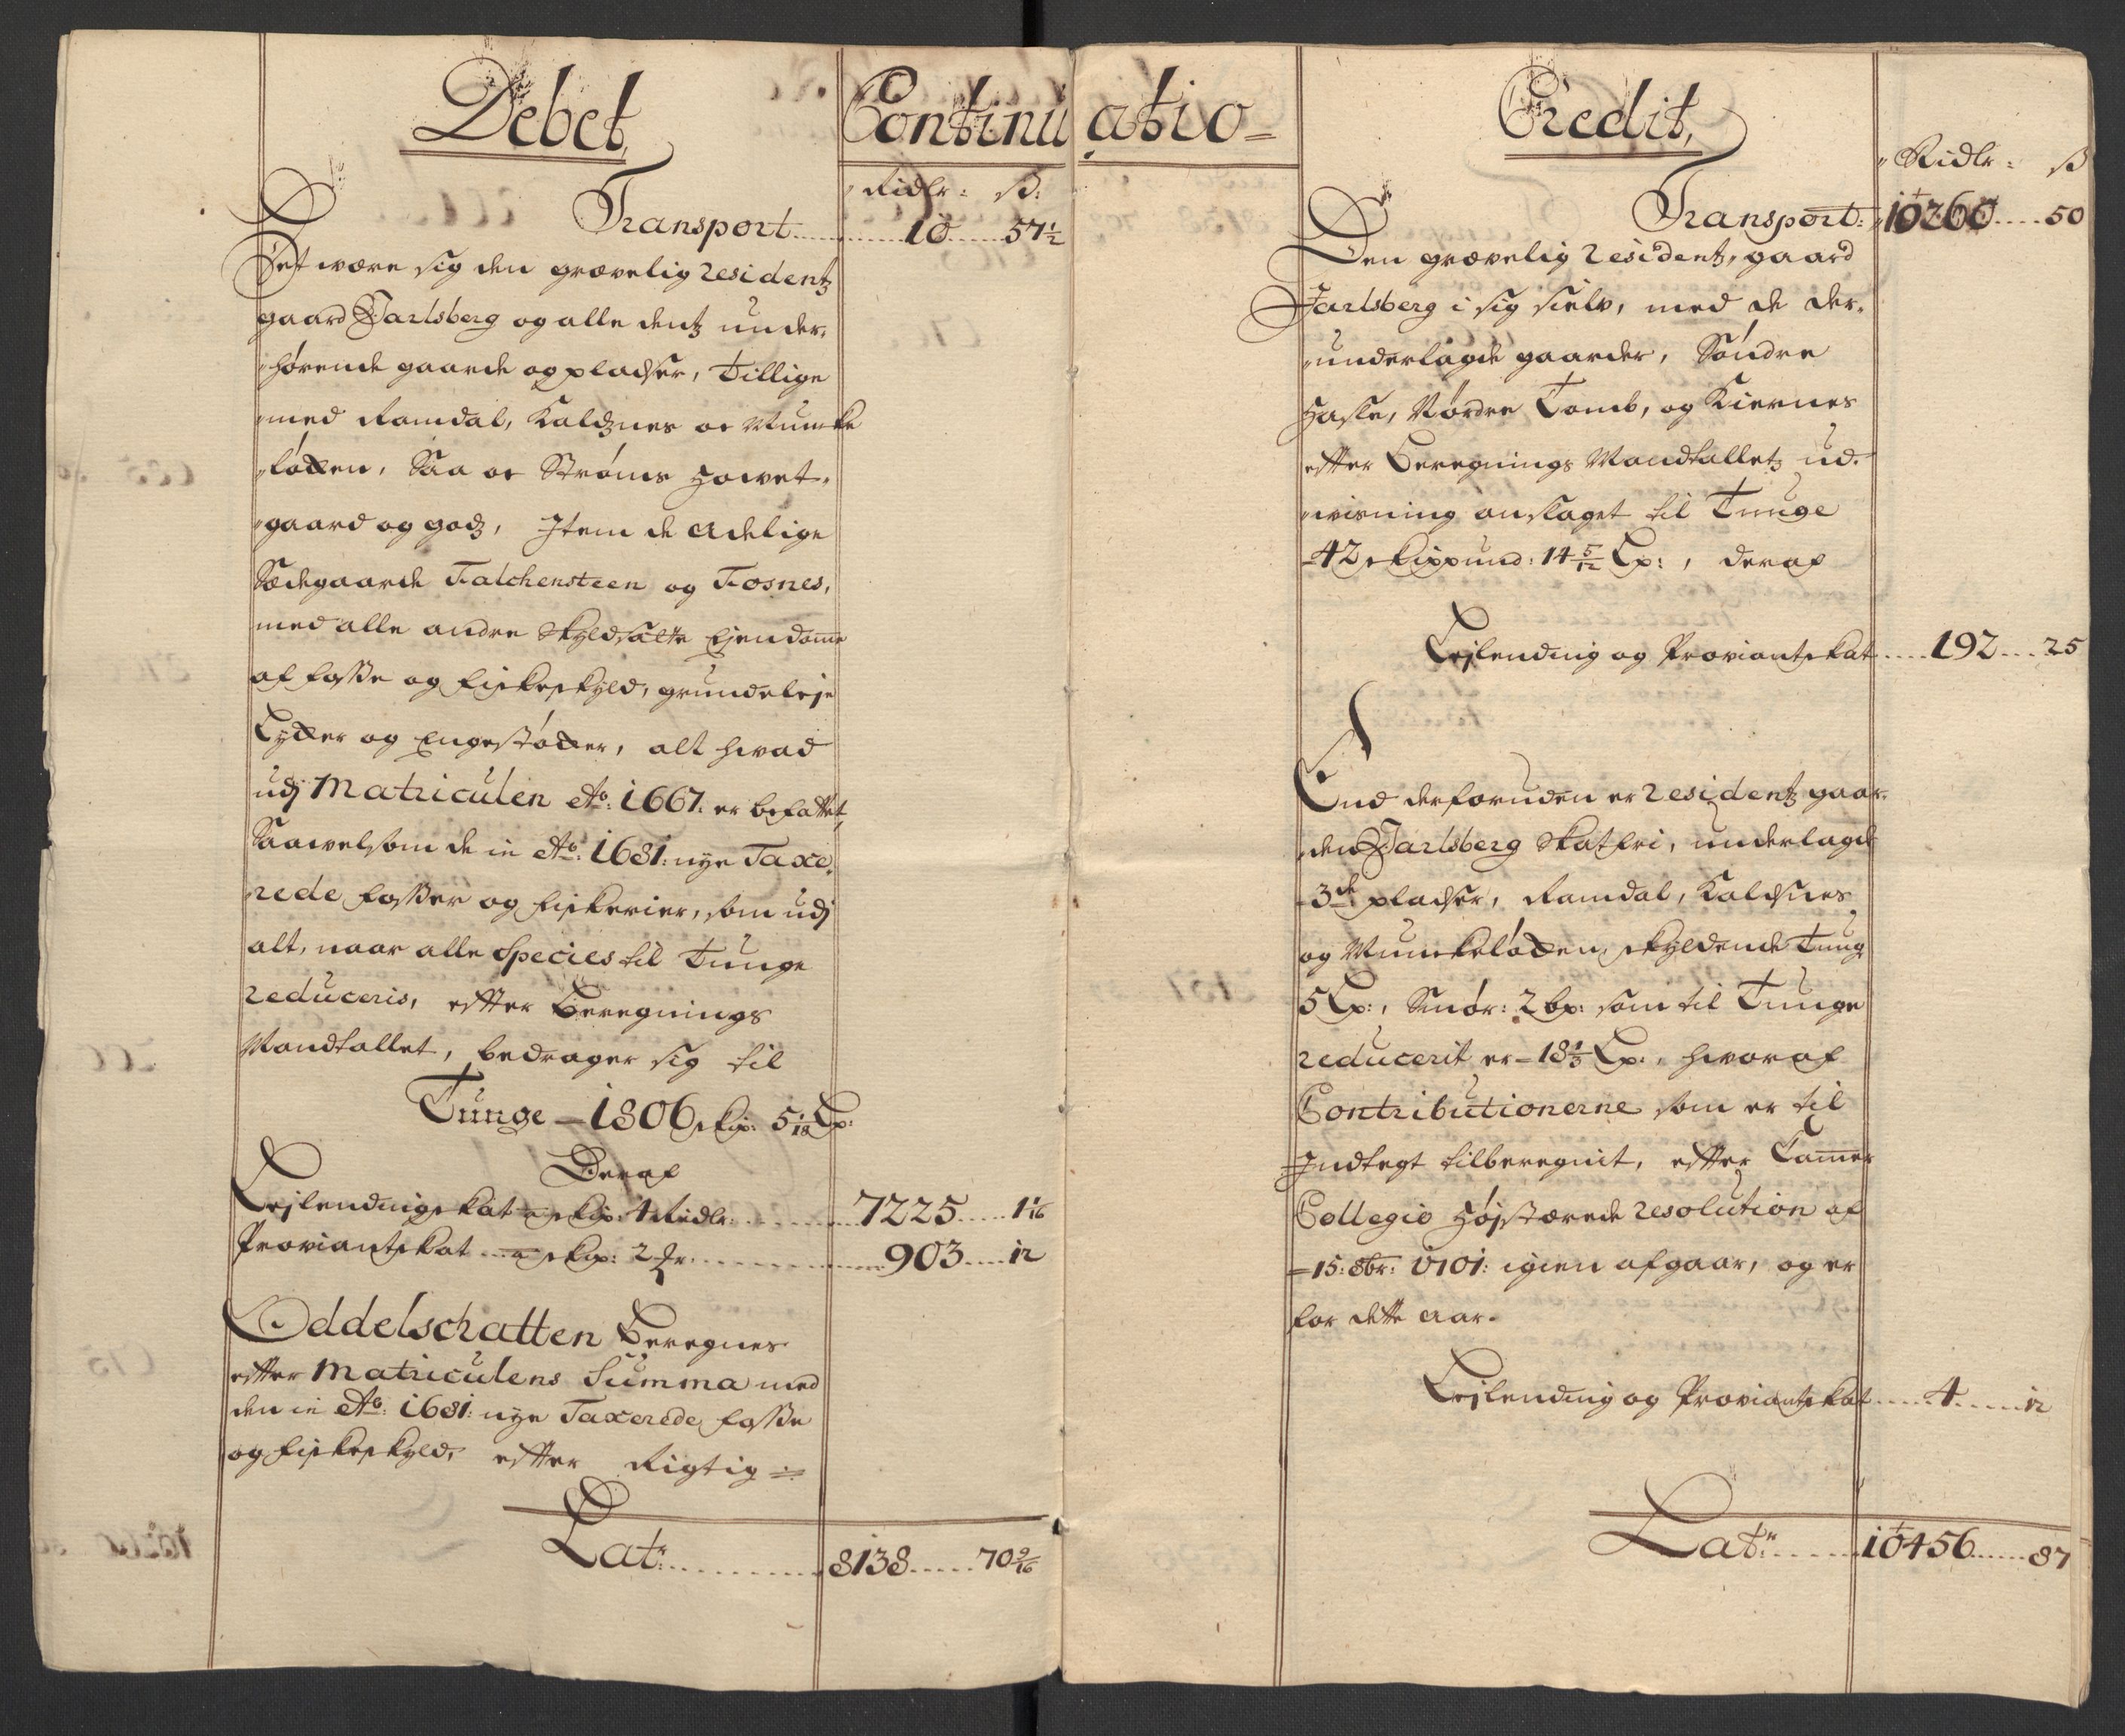 Debet, Continu
Ridlr: ß:
Transport 10 57 1/2
Det være sig den grævelig Residentz
gaard Jarlsberg og alle dentz under-
hørende gaarde og pladser, Tillige
med Ramdal, Kaldznes oc Muncke
løcken, Saa oc Strøms Howet-
gaard og godz, Item de Adelige
Sædegaarde Falchensteen og Fosnes,
med alle andre skyldsatte Ejendomme
af Fosse og Fiskeskyld, grundeleje
Lycker og Engestøcker, alt hvad
udj Matriculen Ao: 1667: er befattet,
Saavelsom de in Ao: 1681: nye Taxe-
rede Fosser og Fiskerier, som udj
alt, naar alle Species til Tunge
reduceris, effter Beregnings
Mandtallet, bedrager sig til
Tunge - 1806 skip: 5 1/18 Lp:
Deraf
Lejlendingskat a skip: 4 Ridlr: 7225 1 1/16
Proviantskat a skip: 2 Fr. 903 12
Oddelschatten Beregnes
effter Matriculens Summa med
den in Ao: 1681: nye Taxerede Fosse
og Fiskeskyld, effter Rigtig
Latr: 8138 70 9/16
atio Credit,
Ridlr: ß
Transport: 10260 50
Den grævelig Residentz, gaard
Jarlsberg i sig sielv, med de der-
underlagde gaarder, Søndre
Hasle, Nørdre Tomb, og Kiernes
effter Beregnings Mandtalletz ud-
visning anslaget til Tunge
42 skippund: 14 5/12 Lp:, deraf
Lejlending og Proviantskat 192 25
End derforuden er Residentz gaar-
den Jarlsberg skatfri, underlagde
3de pladser, Ramdal, Kaldsnes
og Munckeløcken, skyldende Tung
5 Lp:, Smør: 2 bp: som til Tunge
reducerit er - 18 1/3 Lp:, hvoraf
Contributionerne som er til
Indtegt tilberegnit, effter Cammer
Collegio Højstærede resolution af
15: 8br: 1701: igien afgaar, og er
for dette Aar.
Lejlending og Proviantskat 4 12
Latr: 10456 87